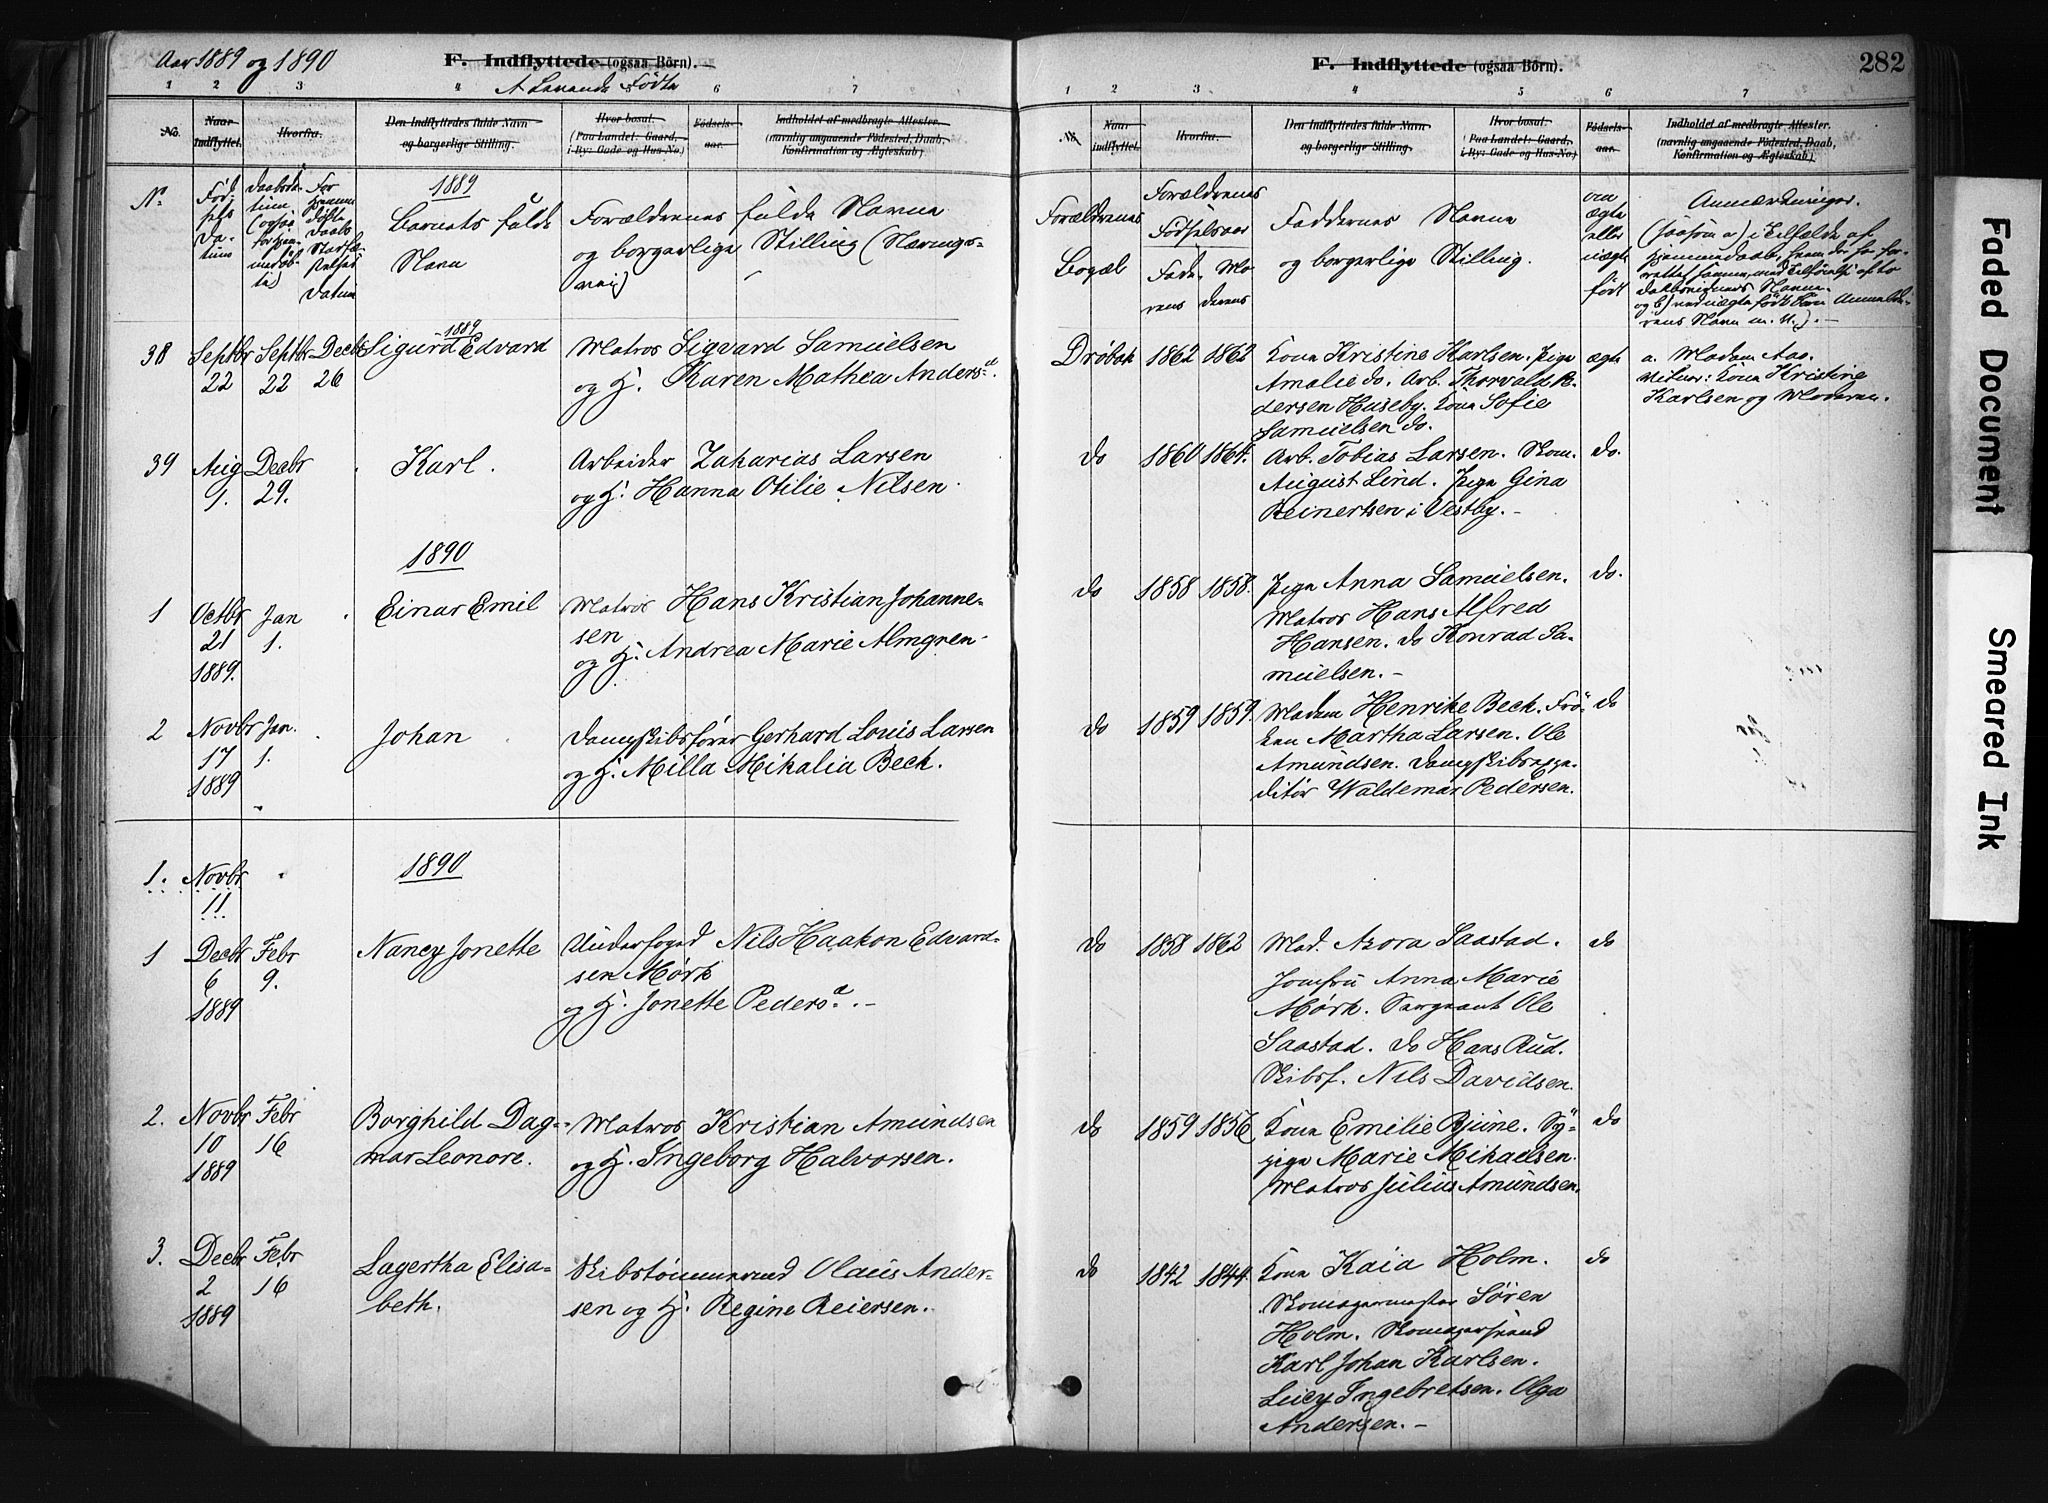 Aar 1889 og 1890
F. Indflyttede (ogsaa Börn).
A Levende Fødte
1 2 3 4 5 6 7
No.
Naar indflyttet.
Hvorfra.
Den Indflyttedes fulde Navn
og borgerlige Stilling.
Hvor bosat.
(Paa Landet: Gaard,
i By: Gade og Hus-No.)
Födsels-
aar.
Indholdet af medbragte Attester.
(navnlig angaaende Födested, Daab,
Konfirmation og Ægteskab)
No.
Fød
sels
Da-
tum
1889
Barnets fulde
Navn
Forældrenes fulde Navne
og borgerlige Stilling (Nærings-
vei)
38 Septbr 22 Septbr 22 Decbr 26
1889
Sigurd Edvard
Matros Sigvard Samuelsen
og H. Karen Mathea Andersn.
39 Aug 1. Decbr 29.
Karl.
Arbeider Zakarias Larsen
og H. Hanna Otilie Nilsen.
1890
1 Octbr 21 1889. Jan 1.
Einar Emil
Matros Hans Kristian Johanne-
sen
og H. Andrea Marie Almgren.
2 Novbr 17 1889 Jan. 1.
Johan
Dampskibsfører Gerhard Louis Larsen
og H. Milla Mikalia Beck.
1890
1. Novbr 11
1 Decbr 6 1889 Febr 9.
Nancy Jonette
Underfoged Nils Haakon Edvard-
sen Mørk
og H. Jonette Peders.
2. Novbr 10 1889 Febr 16
Borghild Dag-
mar Leonore.
Matros Kristian Amundsen
og H. Ingeborg Halvorsen.
3. Decbr 2 1889 Febr 16
Lagertha Elisa-
beth.
Skibstømmermand Olaus Ander-
sen og H. Regine Reiersen.
F. Indflyttede (ogsaa Börn).
282
1 2 3 4 5 6 7
No.
Naar
indflyttet.
Hvorfra.
Den Indflyttedes fulde Navn
og borgerlige Stilling.
Hvor bosat.
(Paa Landet: Gaard,
i By: Gade og Hus-No.)
Födsels-
aar.
Indholdet af medbragte Attester.
(navnlig angaaende Födested, Daab,
Konfirmation og Ægteskab)
Forældrenes
Bopæl
Forældrenes
Fødselsaar
Fade-
rens
Mo
derens
Faddernes Navne
og borgerlige Stilling.
om
ægte
eller
uægte
født
Anmærkninger.
Drøbak 1862 1862
Kone Kristine Karlsen. Pige
Amalie do. Arb. Thorvald P-
dersen Huseby. Kone Sofie
Samuelsen do.
ægte
a. Madam Aas.
Vidner: Kone Kristine
Karlsen og Moderen.
do 1860 1864.
Arb. Tobias Larsen. Skom.
August Lind. Pige Gina
Reinertsen i Vestby.
do.
do 1858 1858.
Pige Anna Samuelsen.
Matros Hans Alfred
Hansen. do Konrad Sa-
muelsen.
do.
do 1859 1859.
Madam Henrike Beck. Frø-
ken Martha Larsen. Ole
Amundsen. Dampskibsexpe-
ditør Waldemar Pedersen.
do
do 1858 1862
Mad. Azora Saastad.
Jomfru Anna Marie
Mørk. Sergeant Ole
Saastad. do Hans Rud.
Skibsf. Nils Davidsen.
do
do 1859 1856
Kone Emilie Bjune. Sy-
pige Marie Mikaelsen.
Matros Julius Amundsen.
do
do 1842 1844.
Kone Kaia Holm.
Skomagermester Søren
Holm. Skomagersvend
Karl Johan Karlsen.
Lucy Ingebretsen. Olga
Andersen.
do
Faded Document
Smeared Ink